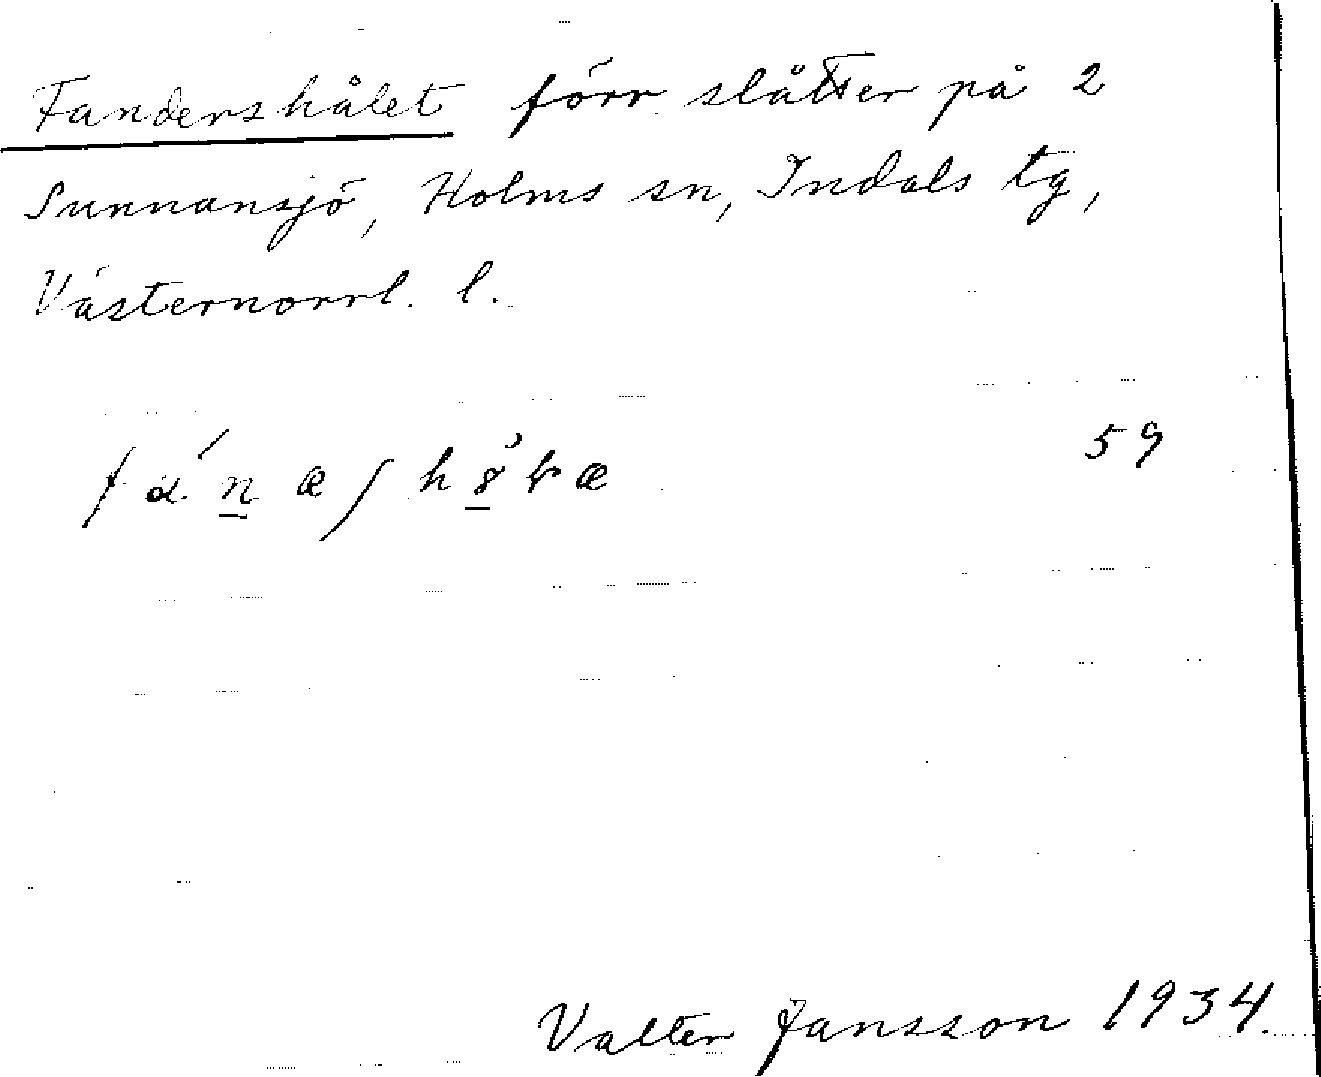 Fandershålet förr slåtter på 2
Sunnansjö, Holms sn, Indals tg,
Västernorrl. l.
59
Valter Jansson 1934.